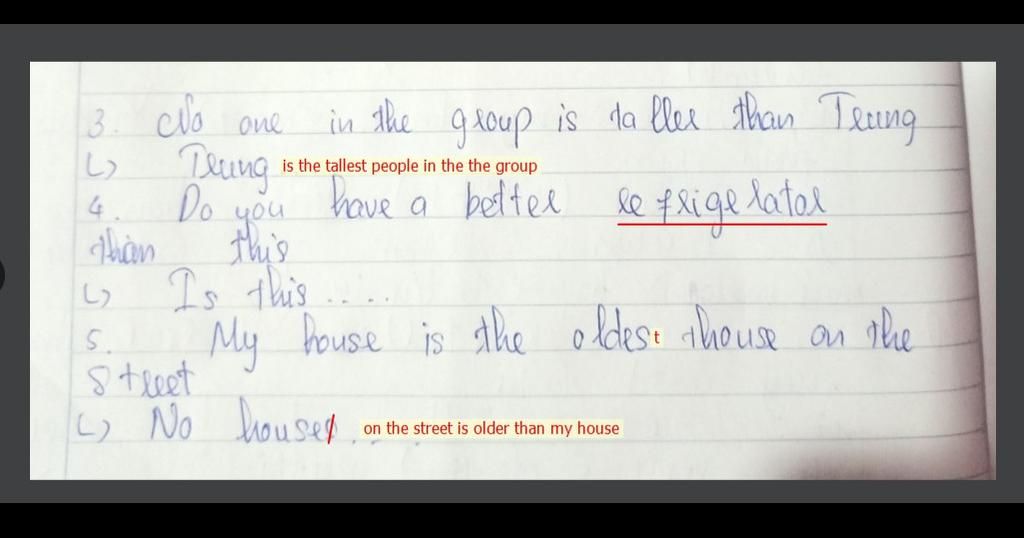 3. No one in the group is taller than Trung
↳ Trung is the tallest people in the the group
4. Do you have a better refrigerator
than this
↳ Is this ....
5. My house is the oldest house on the
Street
↳ No house on the street is older than my house